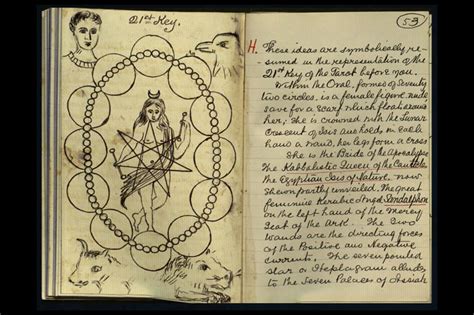 21st Key.
53
H. These ideas are symbolically re-
sumed in the representation of the
21st Key of the Tarot before you.
Within the Oval, formed of Seventy
two circles, is a female figure nude
save for a scarf which floats round
her; She is crowned with the Lunar
Crescent of Isis and holds in each
hand a wand, her legs form a cross
She is the Bride of the Apocalypse
The Kabbalistic Queen of the Canticles
The Egyptian Isis of Nature now
Shewn partly unveiled, The great
feminine Kerubic Angel Sandalphon
on the left hand of the Mercy
Seat of the Ark. The two
Wands are the directing forces
of the Positive and Negative
currents. The seven pointed
Star or Heptagram alludes
to the Seven Palaces of Assiah